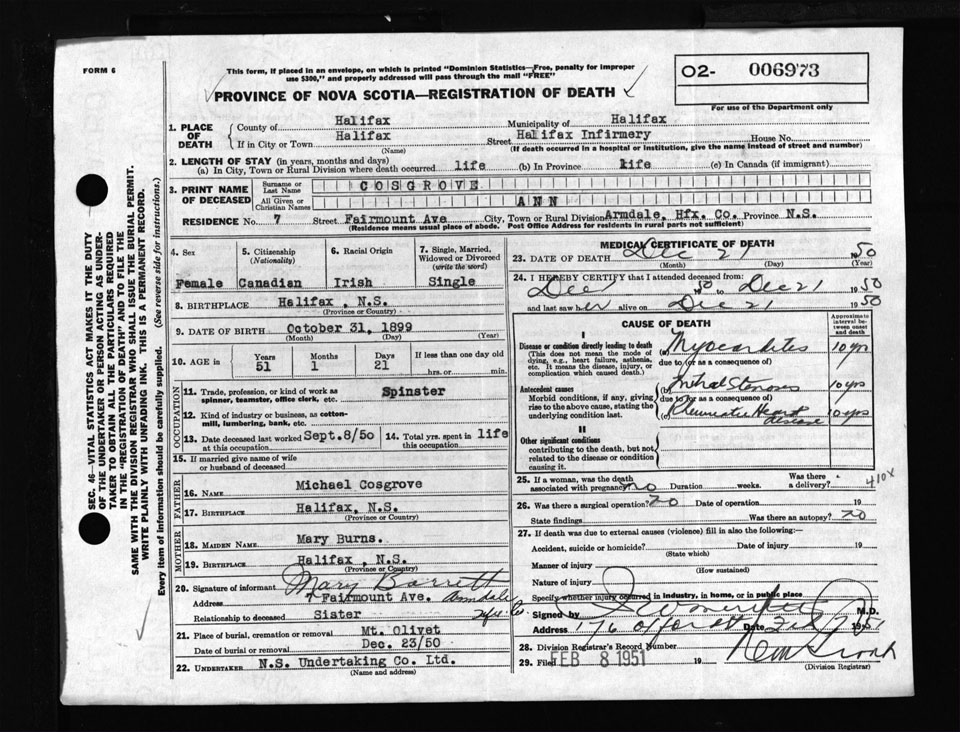 FORM 6
This form, if placed in an envelope, on which is printed "Dominion Statistics—Free, penalty for improper
use $300," and properly addressed will pass through the mail "FREE"
PROVINCE OF NOVA SCOTIA—REGISTRATION OF DEATH
O2- 006973
For use of the Department only
SEC. 46—VITAL STATISTICS ACT MAKES IT THE DUTY
OF THE UNDERTAKER OR PERSON ACTING AS UNDER-
TAKER TO OBTAIN ALL THE PARTICULARS REQUIRED
IN THE "REGISTRATION OF DEATH" AND TO FILE THE
SAME WITH THE DIVISION REGISTRAR WHO SHALL ISSUE THE BURIAL PERMIT.
WRITE PLAINLY WITH UNFADING INK. THIS IS A PERMANENT RECORD.
Every item of information should be carefully supplied. (See reverse side for instructions.)
1. PLACE OF DEATH
County of Halifax Municipality of Halifax
If in City or Town Halifax Street Halifax Infirmery House No.
(Name) (If death occurred in a hospital or institution, give the name instead of street and number)
2. LENGTH OF STAY (in years, months and days)
(a) In City, Town or Rural Division where death occurred life (b) In Province life (c) In Canada (if immigrant)
3. PRINT NAME OF DECEASED
Surname or Last Name COSGROVE
All Given or Christian Names ANN
RESIDENCE No. 7 Street Fairmount Ave City, Town or Rural Division Armdale, Hfx. Co. Province N.S.
(Residence means usual place of abode. Post Office Address for residents in rural parts not sufficient)
4. Sex Female
5. Citizenship (Nationality) Canadian
6. Racial Origin Irish
7. Single, Married, Widowed or Divorced (write the word) Single
8. BIRTHPLACE Halifax, N.S.
(Province or Country)
9. DATE OF BIRTH October 31, 1899
(Month) (Day) (Year)
10. AGE in Years 51 Months 1 Days 21 If less than one day old
hrs. or min.
OCCUPATION
11. Trade, profession, or kind of work as spinner, teamster, office clerk, etc. Spinster
12. Kind of industry or business, as cotton-mill, lumbering, bank, etc.
13. Date deceased last worked at this occupation Sept.8/50
14. Total yrs. spent in this occupation life
15. If married give name of wife or husband of deceased
FATHER
16. NAME Michael Cosgrove
17. BIRTHPLACE Halifax, N.S.
(Province or Country)
MOTHER
18. MAIDEN NAME Mary Burns.
19. BIRTHPLACE Halifax, N.S.
(Province or Country)
20. Signature of informant Mary Barrett
Address 7 Fairmount Ave. Armdale Hfx. Co.
Relationship to deceased Sister
21. Place of burial, cremation or removal Mt. Olivet
Date of burial or removal Dec. 23/50
22. UNDERTAKER N.S. Undertaking Co. Ltd.
(Name and address)
MEDICAL CERTIFICATE OF DEATH
23. DATE OF DEATH Dec 21 1950
(Month) (Day) (Year)
24. I HEREBY CERTIFY that I attended deceased from:
Dec 1 1950 to Dec 21 1950
and last saw her alive on Dec 21 1950
CAUSE OF DEATH
Approximate interval between onset and death
I
Disease or condition directly leading to death
(This does not mean the mode of dying, e.g., heart failure, asthenia, etc. It means the disease, injury, or complication which caused death.)
(a) Myocarditis 10 yrs
due to (or as a consequence of)
Antecedent causes
Morbid conditions, if any, giving rise to the above cause, stating the underlying condition last.
(b) Mitral Stenosis 10 yrs
due to (or as a consequence of)
(c) Rheumatic Heart disease 10 yrs
II
Other significant conditions
contributing to the death, but not related to the disease or condition causing it.
25. If a woman, was the death associated with pregnancy no Duration weeks. Was there a delivery?
410X
26. Was there a surgical operation? no Date of operation 19
State findings Was there an autopsy? no
27. If death was due to external causes (violence) fill in also the following:—
Accident, suicide or homicide? Date of injury 19
(State which)
Manner of injury
(How sustained)
Nature of injury
Specify whether injury occurred in industry, in home, or in public place
Signed by M.D.
Address 176 Date Feb 7 1951
28. Division Registrar's Record Number
29. Filed FEB 8 1951 19
(Division Registrar)